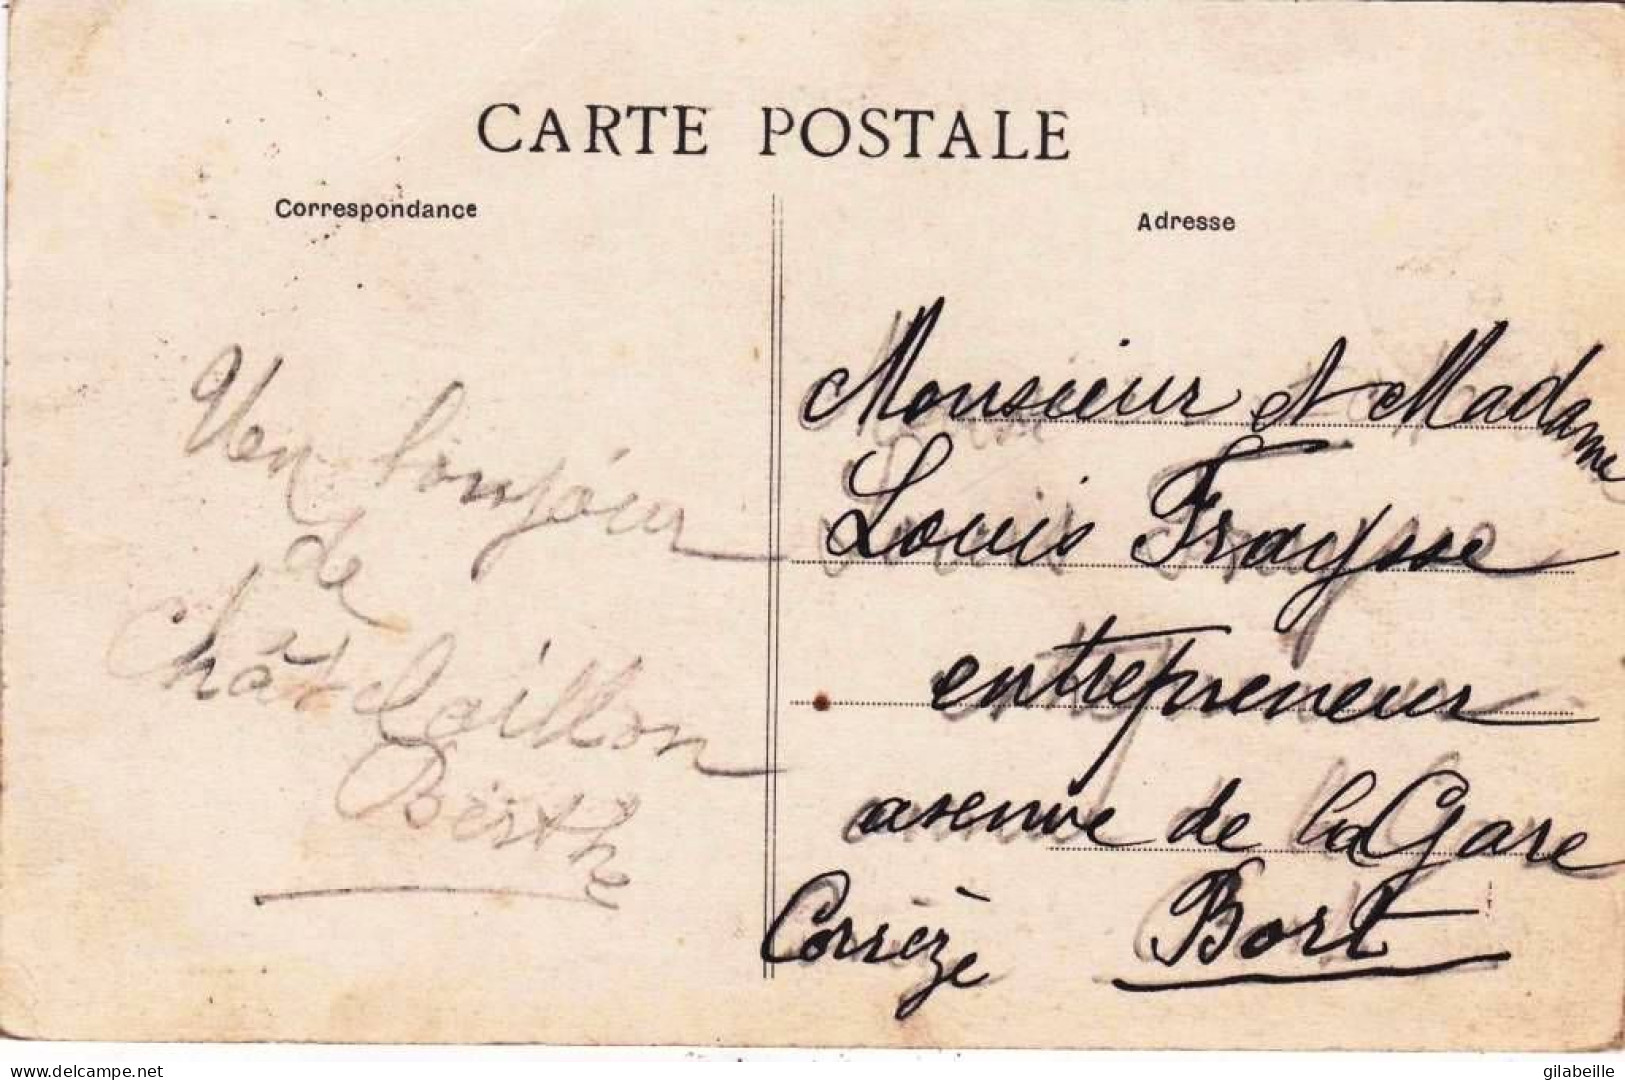 CARTE POSTALE
Correspondance
Un bonjour
de
Châtelaillon
Berthe
Adresse
Monsieur et Madame
Louis Fraysse
entrepreneur
avenue de la Gare
Corrèze Bort
delcampe.net
gilabeille